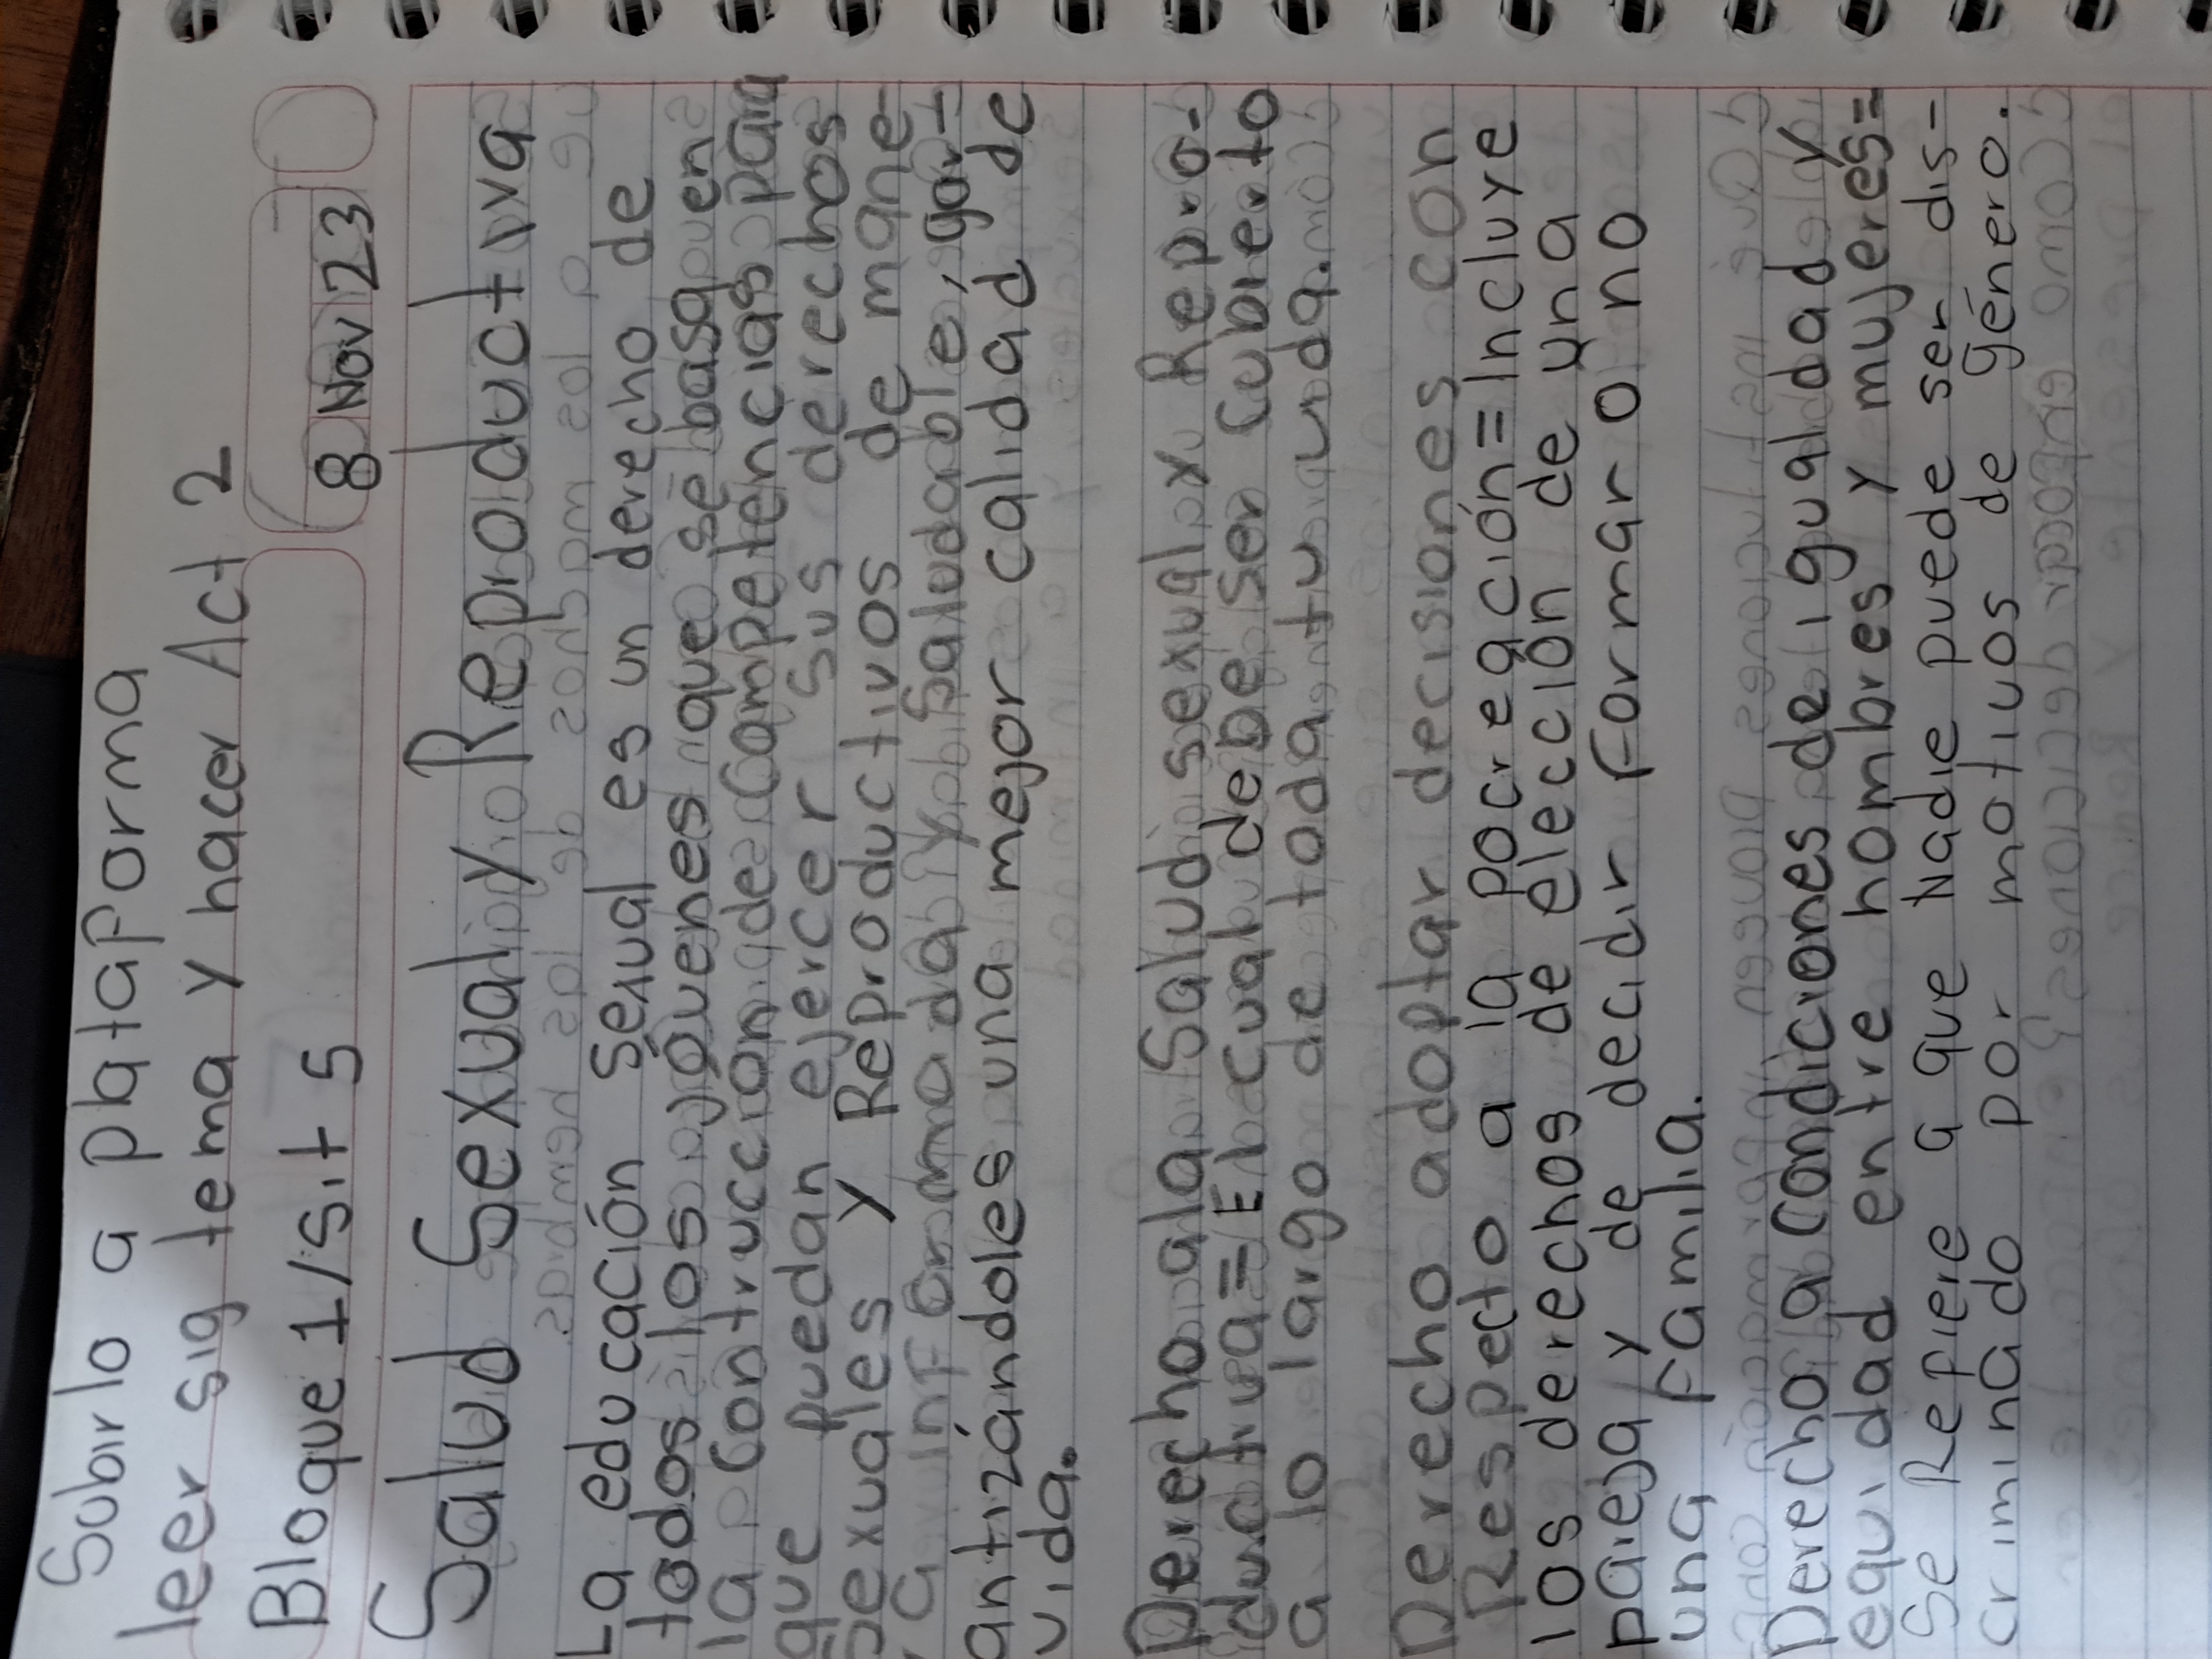 Subirlo a plataforma
leer sig tema y hacer Act 2
Bloque 1/sit 5
8 Nov 23
Salud Sexual y Reproductiva
La educación sexual es un derecho de
todos los jóvenes que se basa en
la contrucción de competencias para
que puedan ejercer sus derechos
sexuales y Reproductivos de mane-
informada y saludable, gar-
antizándoles una mejor calidad de
vida.
Derecho a la Salud sexual y Repro-
ductiva = El cual debe ser cubierto
a lo largo de toda tu vida.
Derecho a adoptar decisiones con
Respecto a la pocreación = Incluye
los derechos de elección de una
pareja y de decidir formar o no
una familia.
Derecho a condiciones de igualdad y
equidad entre hombres y mujeres =
Se Refiere a que Nadie puede ser dis-
criminado por motivos de género.